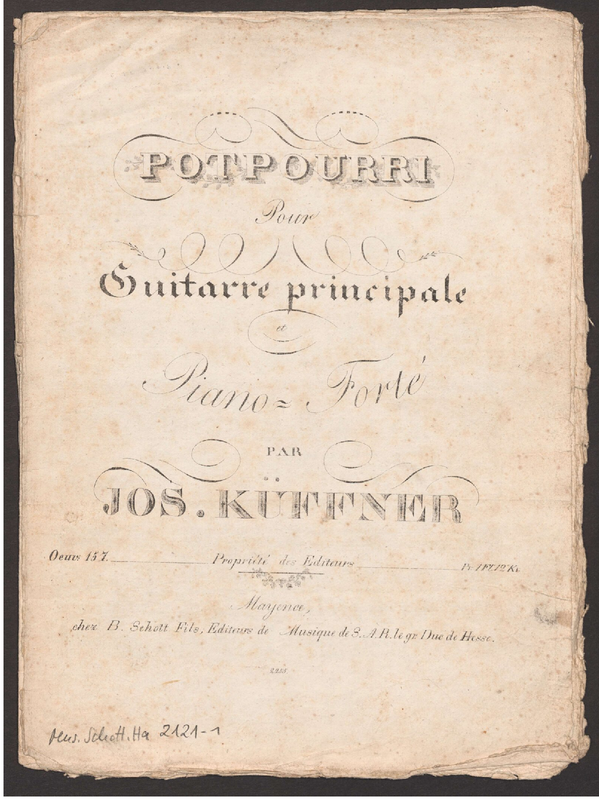 POTPOURRI
Pour
Guitarre principale
a
Piano=Forté
PAR
JOS. KÜFFNER
Oeuv 157. Propriété des Editeurs
Mayence,
chez B. Schott Fils, Editeurs de Musique de S. A. R. le gr. Duc de Hesse.
Mus. Schott. Ha 2121-1